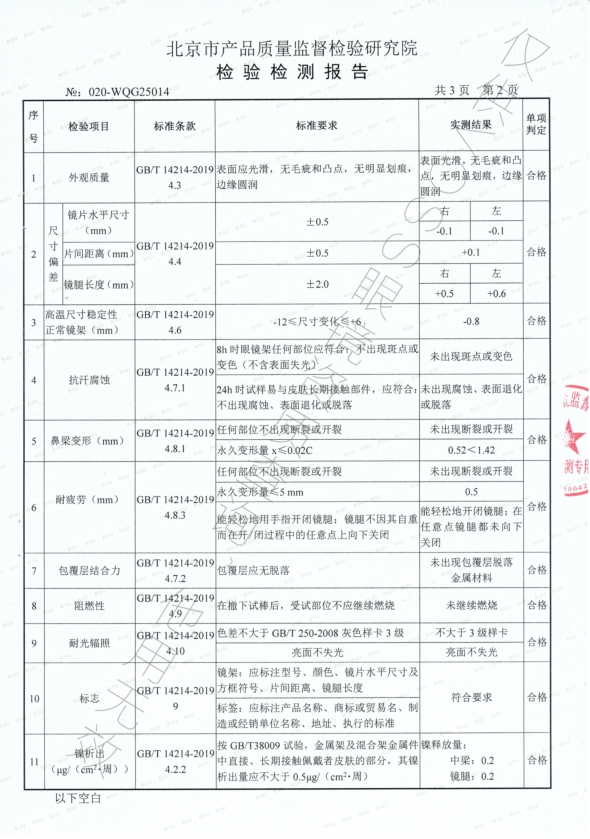 北京市产品质量监督检验研究院
检验检测报告
№: 020-WQG25014
共 3 页 第 2 页
序号 检验项目 标准条款 标准要求 实测结果 单项判定
1 外观质量 GB/T 14214-2019 4.3 表面应光滑，无毛疵和凸点，无明显划痕，边缘圆润 表面光滑，无毛疵和凸点，无明显划痕，边缘圆润 合格
2 尺寸偏差 GB/T 14214-2019 4.4 合格
镜片水平尺寸（mm） ±0.5 右 左
-0.1 -0.1
片间距离（mm） ±0.5 +0.1
镜腿长度（mm） ±2.0 右 左
+0.5 +0.6
3 高温尺寸稳定性 正常镜架（mm） GB/T 14214-2019 4.6 -12≤尺寸变化≤+6 -0.8 合格
4 抗汗腐蚀 GB/T 14214-2019 4.7.1 合格
8h 时眼镜架任何部位应符合：不出现斑点或变色（不含表面失光） 未出现斑点或变色
24h 时试样易与皮肤长期接触部件，应符合：不出现腐蚀、表面退化或脱落 未出现腐蚀、表面退化或脱落
5 鼻梁变形（mm） GB/T 14214-2019 4.8.1 合格
任何部位不出现断裂或开裂 未出现断裂或开裂
永久变形量 x≤0.02C 0.52<1.42
6 耐疲劳（mm） GB/T 14214-2019 4.8.3 合格
任何部位不出现断裂或开裂 未出现断裂或开裂
永久变形量≤5 mm 0.5
能轻松地用手指开闭镜腿；镜腿不因其自重而在开/闭过程中的任意点上向下关闭 能轻松地开闭镜腿；在任意点镜腿都未向下关闭
7 包覆层结合力 GB/T 14214-2019 4.7.2 包覆层应无脱落 未出现包覆层脱落 金属材料 合格
8 阻燃性 GB/T 14214-2019 4.9 在撤下试棒后，受试部位不应继续燃烧 未继续燃烧 合格
9 耐光辐照 GB/T 14214-2019 4.10 合格
色差不大于 GB/T 250-2008 灰色样卡 3 级 不大于 3 级样卡
亮面不失光 亮面不失光
10 标志 GB/T 14214-2019 9 符合要求 合格
镜架：应标注型号、颜色、镜片水平尺寸及方框符号、片间距离、镜腿长度
标签：应标注产品名称、商标或贸易名、制造或经销单位名称、地址、执行的标准
11 镍析出（μg/（cm²·周）） GB/T 14214-2019 4.2.2 按 GB/T38009 试验，金属架及混合架金属件中直接、长期接触佩戴者皮肤的部分，其镍析出量应不大于 0.5μg/（cm²·周） 镍释放量： 中梁：0.2 镜腿：0.2 合格
以下空白